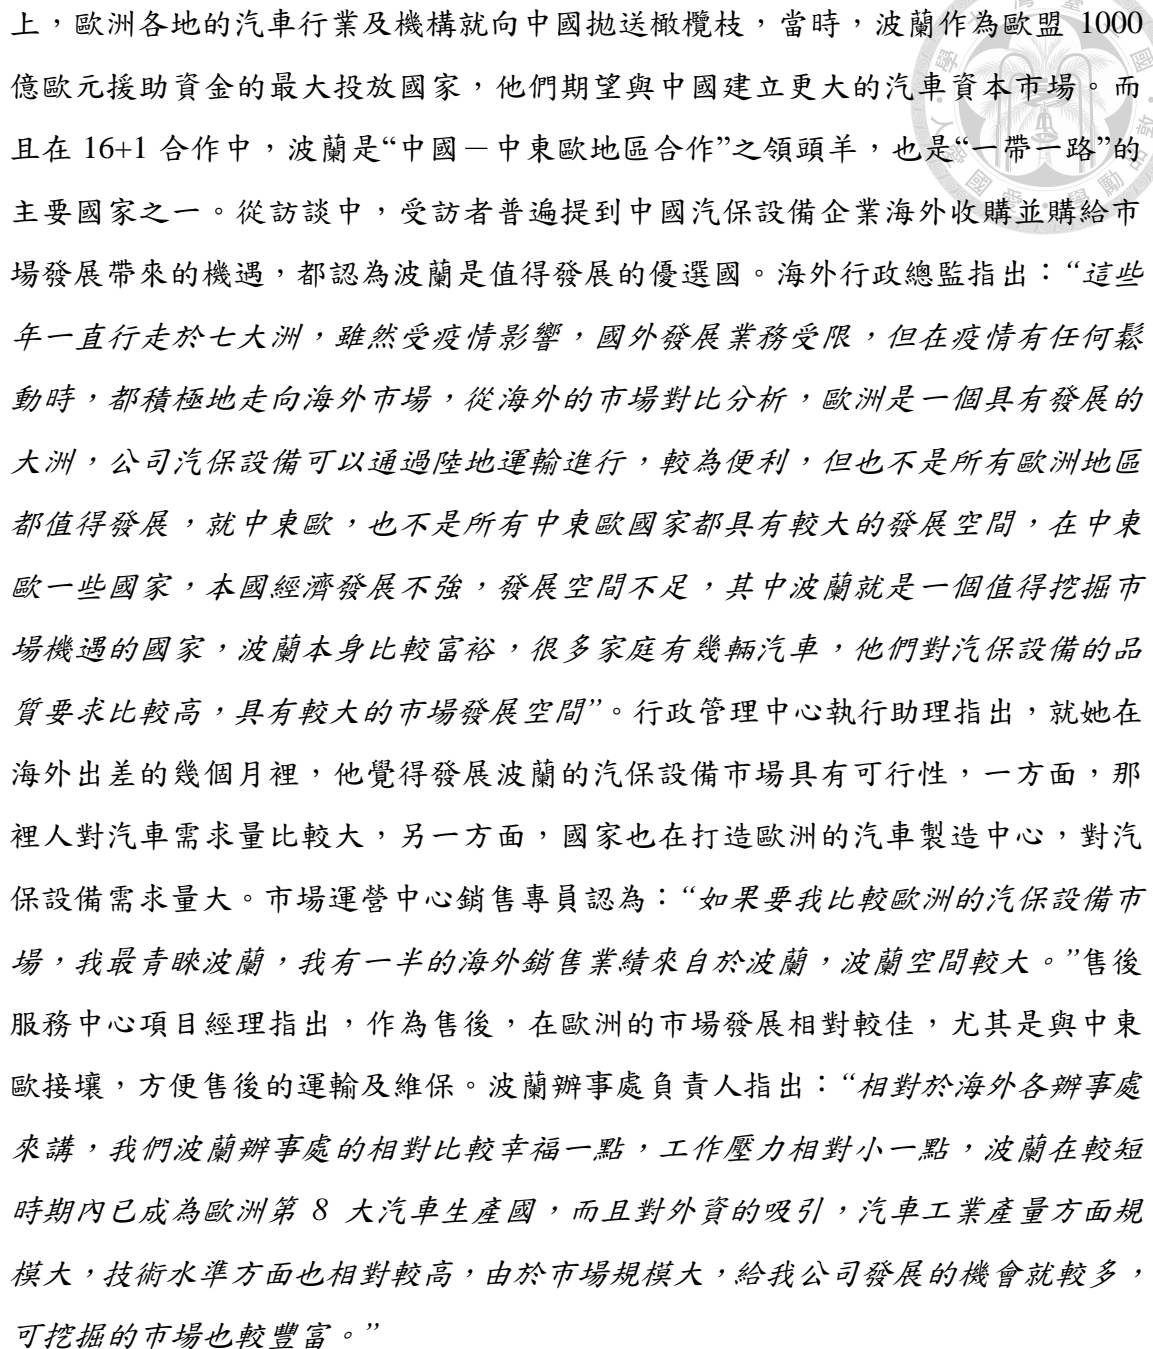 上，歐洲各地的汽車行業及機構就向中國拋送橄欖枝，當時，波蘭作為歐盟 1000
億歐元援助資金的最大投放國家，他們期望與中國建立更大的汽車資本市場。而
且在 16+1 合作中，波蘭是“中國－中東歐地區合作”之領頭羊，也是“一帶一路”的
主要國家之一。從訪談中，受訪者普遍提到中國汽保設備企業海外收購並購給市
場發展帶來的機遇，都認為波蘭是值得發展的優選國。海外行政總監指出：“這些
年一直行走於七大洲，雖然受疫情影響，國外發展業務受限，但在疫情有任何鬆
動時，都積極地走向海外市場，從海外的市場對比分析，歐洲是一個具有發展的
大洲，公司汽保設備可以通過陸地運輸進行，較為便利，但也不是所有歐洲地區
都值得發展，就中東歐，也不是所有中東歐國家都具有較大的發展空間，在中東
歐一些國家，本國經濟發展不強，發展空間不足，其中波蘭就是一個值得挖掘市
場機遇的國家，波蘭本身比較富裕，很多家庭有幾輛汽車，他們對汽保設備的品
質要求比較高，具有較大的市場發展空間”。行政管理中心執行助理指出，就她在
海外出差的幾個月裡，他覺得發展波蘭的汽保設備市場具有可行性，一方面，那
裡人對汽車需求量比較大，另一方面，國家也在打造歐洲的汽車製造中心，對汽
保設備需求量大。市場運營中心銷售專員認為：“如果要我比較歐洲的汽保設備市
場，我最青睞波蘭，我有一半的海外銷售業績來自於波蘭，波蘭空間較大。”售後
服務中心項目經理指出，作為售後，在歐洲的市場發展相對較佳，尤其是與中東
歐接壤，方便售後的運輸及維保。波蘭辦事處負責人指出：“相對於海外各辦事處
來講，我們波蘭辦事處的相對比較幸福一點，工作壓力相對小一點，波蘭在較短
時期內已成為歐洲第 8 大汽車生產國，而且對外資的吸引，汽車工業產量方面規
模大，技術水準方面也相對較高，由於市場規模大，給我公司發展的機會就較多，
可挖掘的市場也較豐富。”